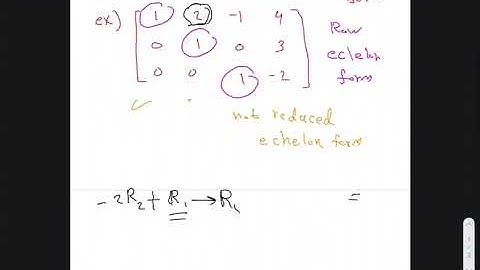 form
ex) [ 1 2 -1 4
0 1 0 3
0 0 1 -2 ]
Row
echelon
form
not reduced
echelon form
-2R₂ + R₁ → R₁ =